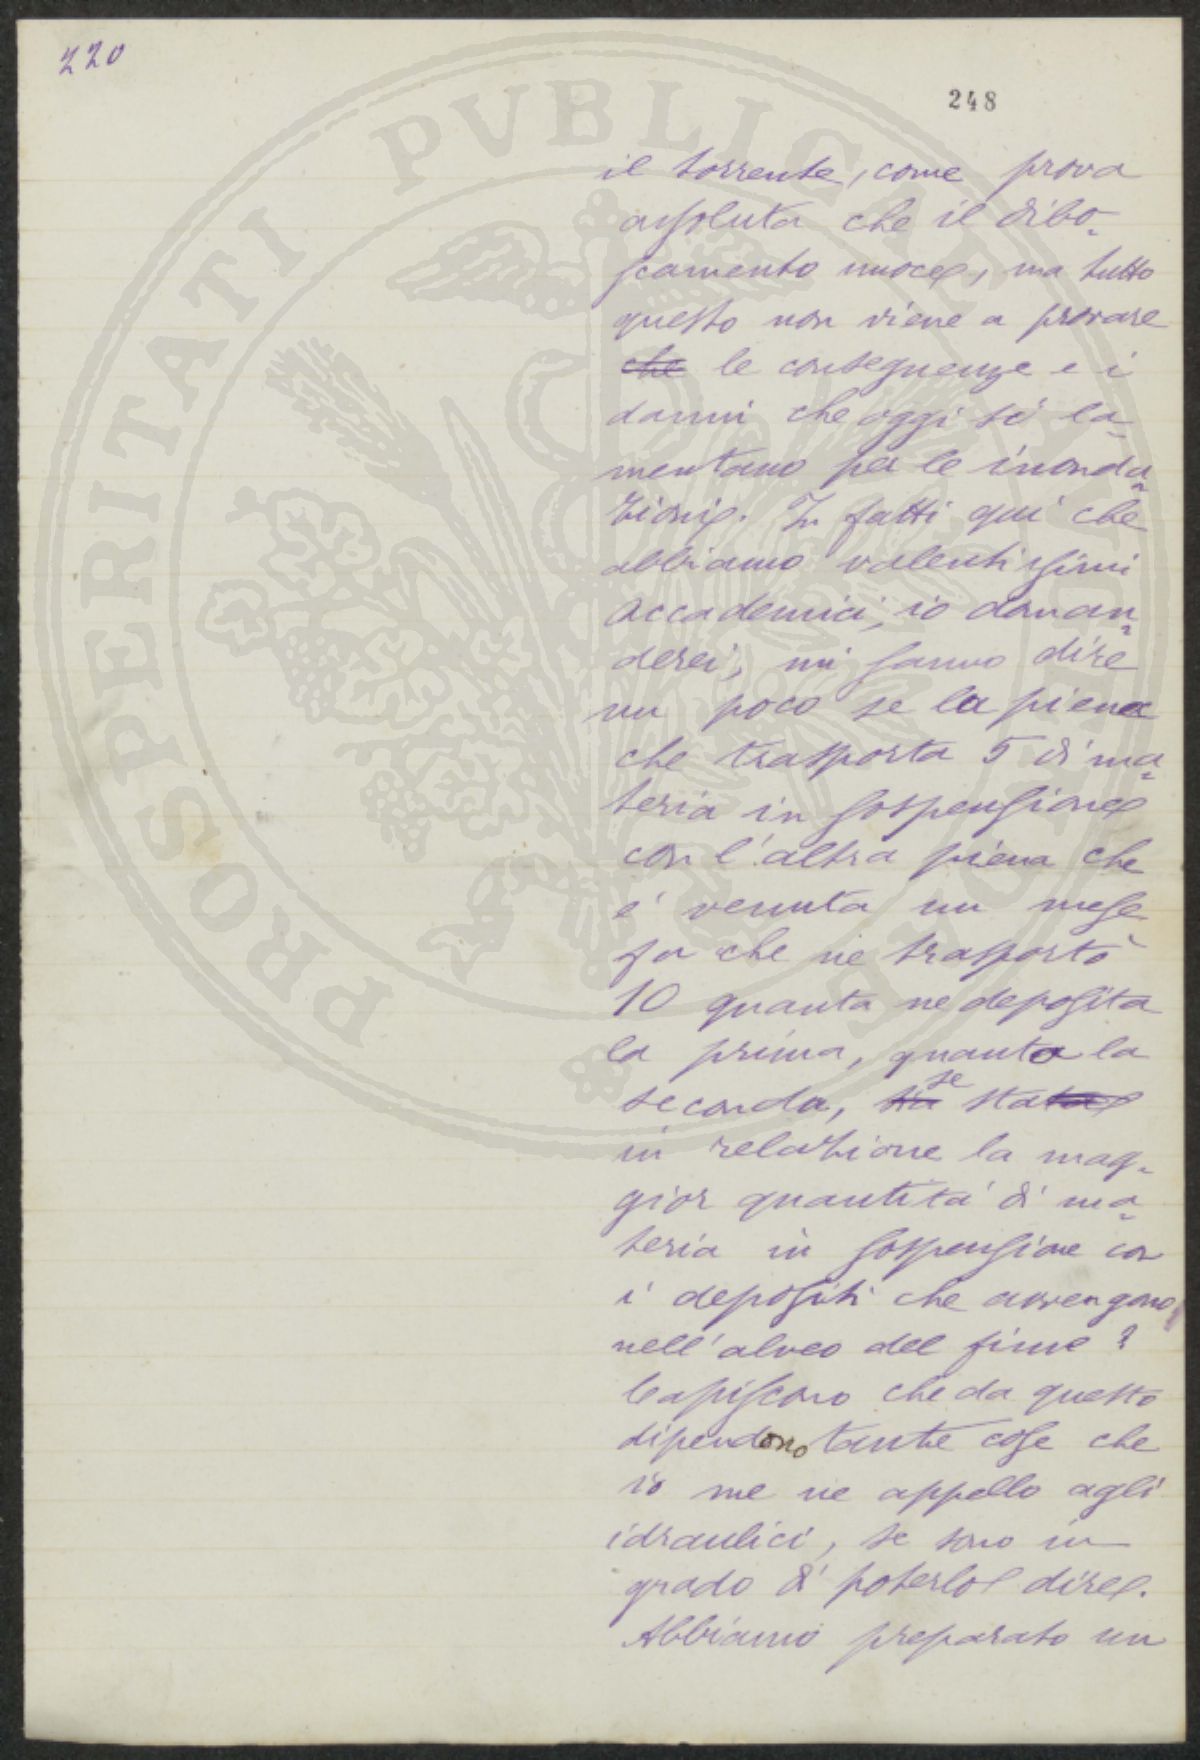 220
248
il torrente, come prova
assoluta che il dibo-
scamento nuoce, ma tutto
questo non viene a provare
che le conseguenze e i
danni che oggi si la-
mentano per le inonda-
zioni. In fatti qui che
abbiamo valentissimi
accademici, io doman-
derei, mi sanno dire
un poco se la piena
che trasporta 5 di ma-
teria in sospensione
con l'altra piena che
è venuta un mese
fa che ne trasportò
10 quanta ne deposita
la prima, quanta la
seconda, se sta
in relazione la mag-
gior quantità di ma-
teria in sospensione con
i depositi che avvengono
nell'alveo del fiume?
Capiscono che da questo
dipendono tante cose che
io me ne appello agli
idraulici, se sono in
grado di poterlo dire.
Abbiamo preparato un
PROSPERITATI PVBLICAE